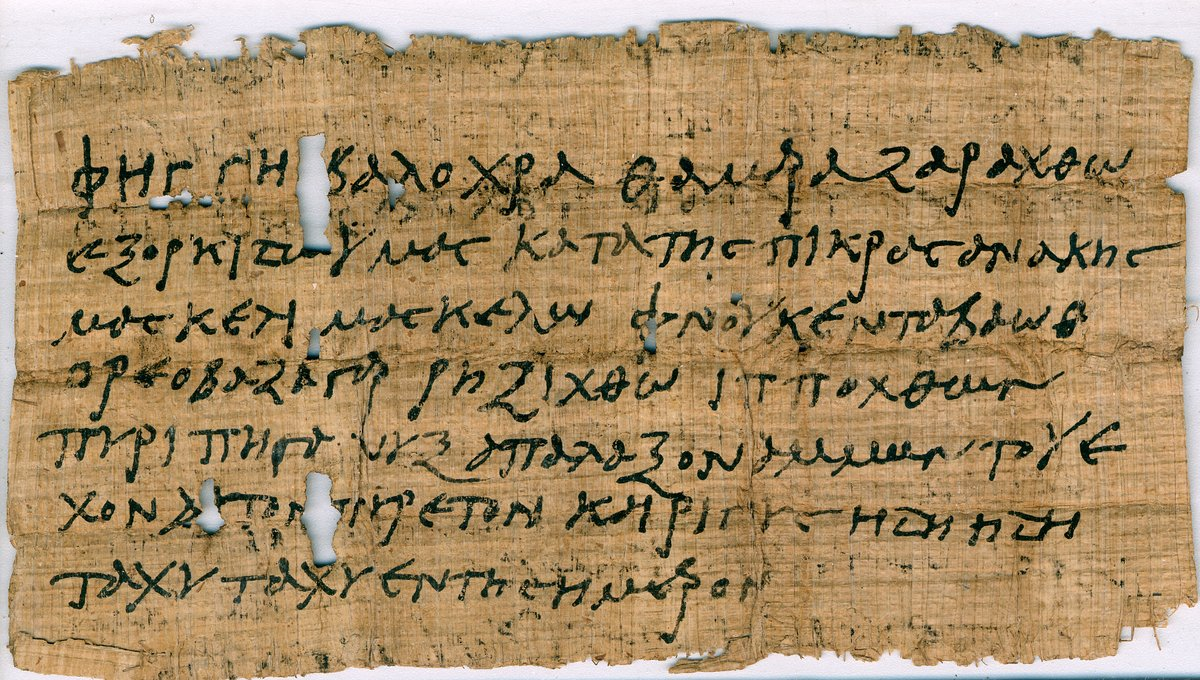 φηγγη βαλοχρα θαμρα ζαραχθω
εξορκιζω υμας κατα της πικρας ανακης
μασκελι μασκελω φνουκενταβαωθ
ορεοβαζαγρ ρηξιχθω ιπποχθων
πυριπηγανυξ απαλαξον αμμων του ε
χοντα τον πυρετον κη ριγος ηδη ηδη
ταχυ ταχυ εν τη σημερον